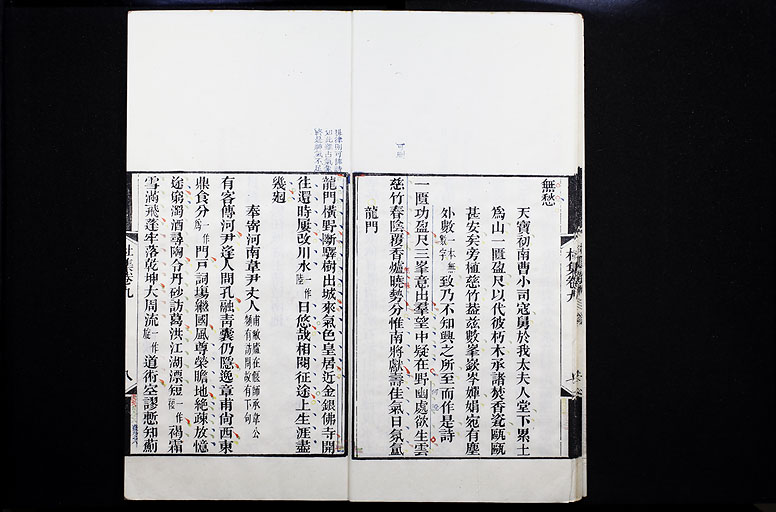 無愁
天寶初南曹小司寇舅於我太夫人堂下累土
為山一匱盈尺以代彼朽木承諸焚香瓷甌甌
甚安矣旁植慈竹蓋茲數峯嶔岑嬋娟宛有塵
外數一本無數字致乃不知興之所至而作是詩
一匱功盈尺三峯意出羣望中疑在野幽處欲生雲
慈竹春陰覆香爐曉勢分惟南將獻壽佳氣日氛氳
龍門
龍門橫野斷驛樹出城來氣色皇居近金銀佛寺開
往還時屢改川水一作陸日悠哉相閱征途上生涯盡
幾迴
奉寄河南韋尹丈人甫敝廬在偃師承韋公頻有訪問故有下句
有客傳河尹逢人問孔融青囊仍隱逸章甫尚西東
鼎食分一作為門戶詞場繼國風尊榮瞻地絶疎放憶
途窮濁酒尋陶令丹砂訪葛洪江湖漂短一作裋褐霜
雪滿飛蓬牢落乾坤大周流一作旋道術空謬慙知薊
杜集卷九
八